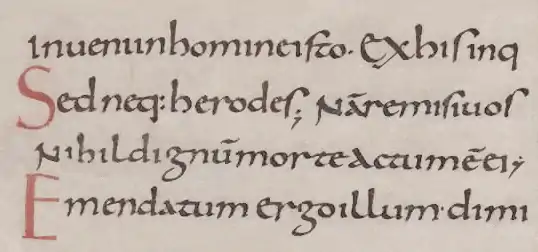 Inueniinhomineisto. Exhisinq
Sedneq: herodes; Nāremisiuos
Nihildignūmorteactumēei;
Emendatum ergoillum·dimi